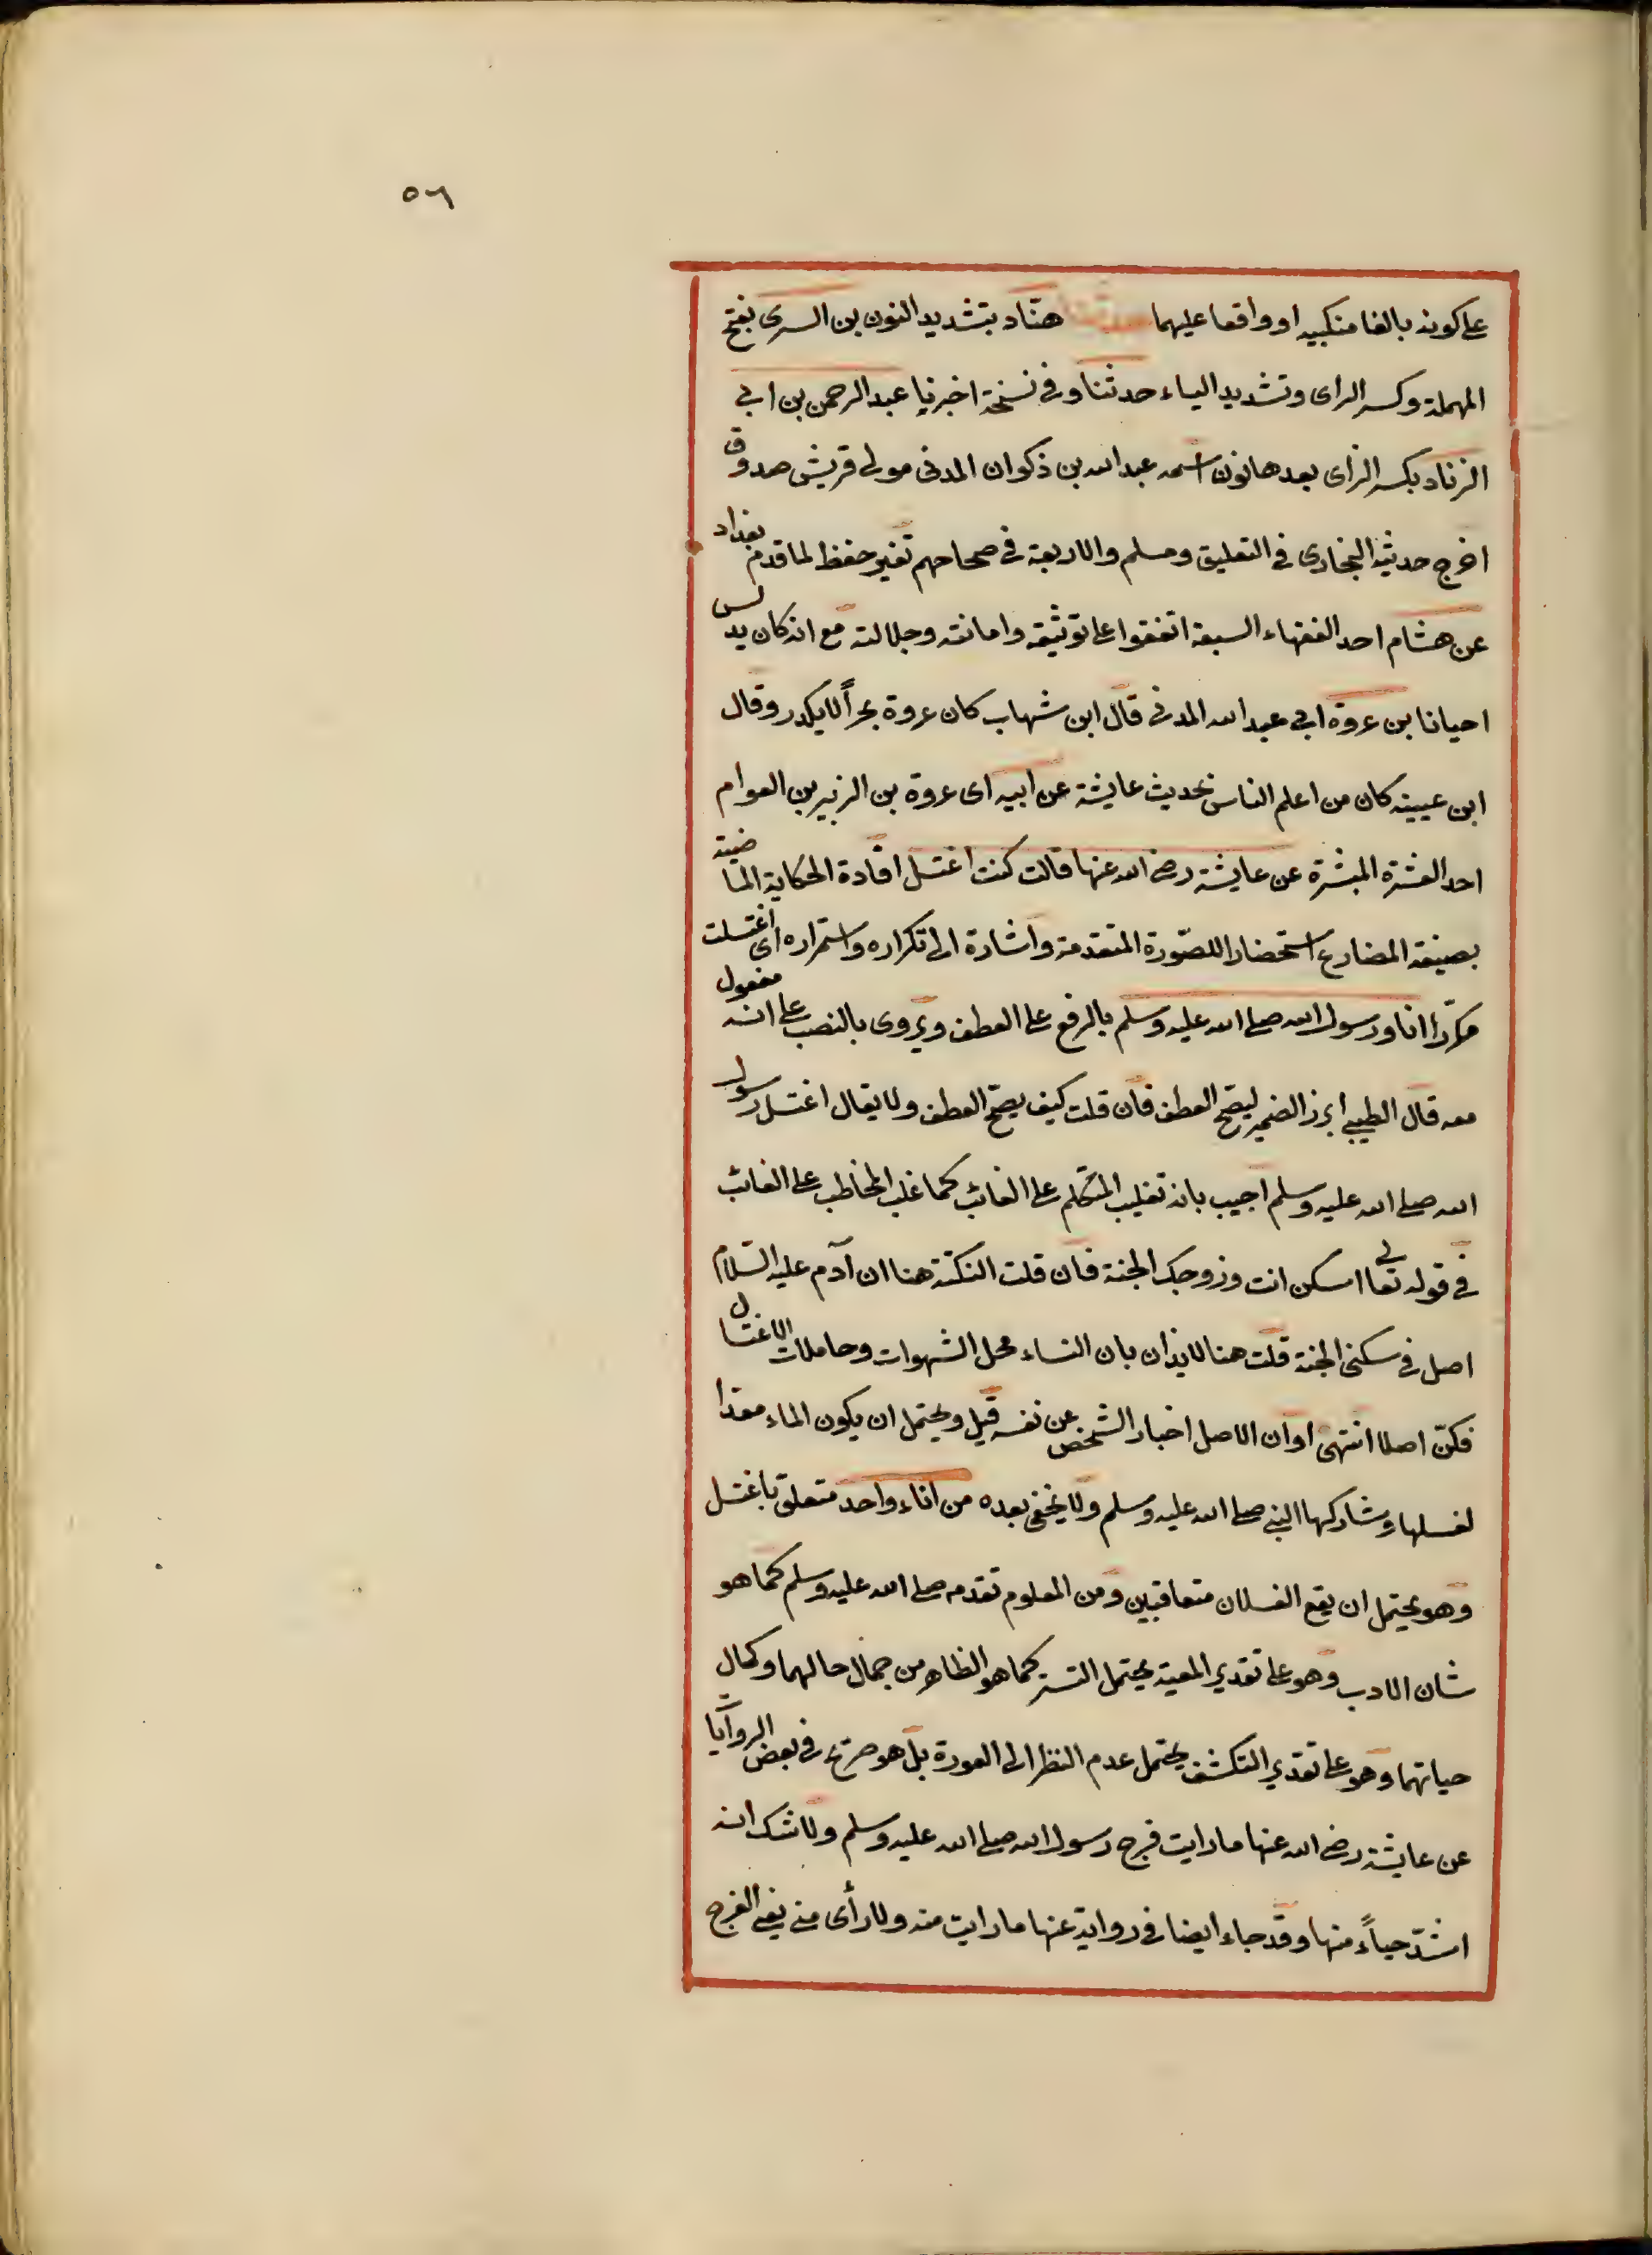 ٥٦
على كونه بالغا منكبيه او واقعا عليهما حدثنا هنّاد بتشديد النون بن السرى بفتح
المهملة وكسر الراى وتشديد الياء حدثنا وفى نسخة اخبرنا عبد الرحمن بن ابى
الزناد بكسر الزاى بعدها نون اسمه عبد الله بن ذكوان المدنى مولى قريش صدوق
اخرج حديثه البخارى فى التعليق ومسلم والاربعة فى صحاحهم تغير حفظ لما قدم بغداد
عن هشام احد الفقهاء السبعة اتفقوا على توثيقه وامانته وجلالته مع انه كان يدلس
احيانا بن عروة ابى عبد الله المدنى قال ابن شهاب كان عروة بحراً لا يكدر وقال
ابن عيينه كان من اعلم الناس بحديث عايشة عن ابيه اى عروة بن الزبير بن العوام
احد العشرة المبشرة عن عايشة رضى الله عنها قالت كنت اغتسل افادة الحكاية الماضية
بصيغة المضارع استحضارا للصّورة المتقدمة واشارة الى تكراره واستمراره اى اغتسلت
مكرّرا انا ورسول الله صلى الله عليه وسلم بالرفع على العطف ويروى بالنصب على انه مفعول
معه قال الطيبى ابرز الضمير ليصحّ العطف فان قلت كيف يصحّ العطف ولا يقال اغتسل رسول
الله صلى الله عليه وسلم اجيب بانه تغليب المتكلم على الغائب كما غلب المخاطب على الغائب
فى قوله تعالى اسكن انت وزوجك الجنة فان قلت النكتة هنا ان آدم عليه السّلام
اصل فى سكنى الجنة قلت هنا لايذان بان النساء محل الشهوات وحاملات الاغتسال
فكنّ اصلا انتهى اوان الاصل اخبار الشخص عن نفسه قيل ويحتمل ان يكون الماء معدا
لغسلها وشاركها النبى صلى الله عليه وسلم ولا يخفى بعده من اناء واحد متعلق باغتسل
وهو يحتمل ان يقع الغسلان متعاقبين ومن المعلوم تقدمه صلى الله عليه وسلم كما هو
شان الادب وهو على تقدير المعية يحتمل التستر كما هو الظاهر من جمال حالهما وكمال
حياتهما وهو على تقدير التكشف يحتمل عدم النظر الى العورة بل هو صريح فى بعض الروايا
عن عايشة رضى الله عنها ما رايت فرج رسول الله صلى الله عليه وسلم ولا شك انه
اشدّ حياءً منها وقد جاء ايضا فى رواية عنها ما رايت منه ولا رأى منى يعنى الفرج